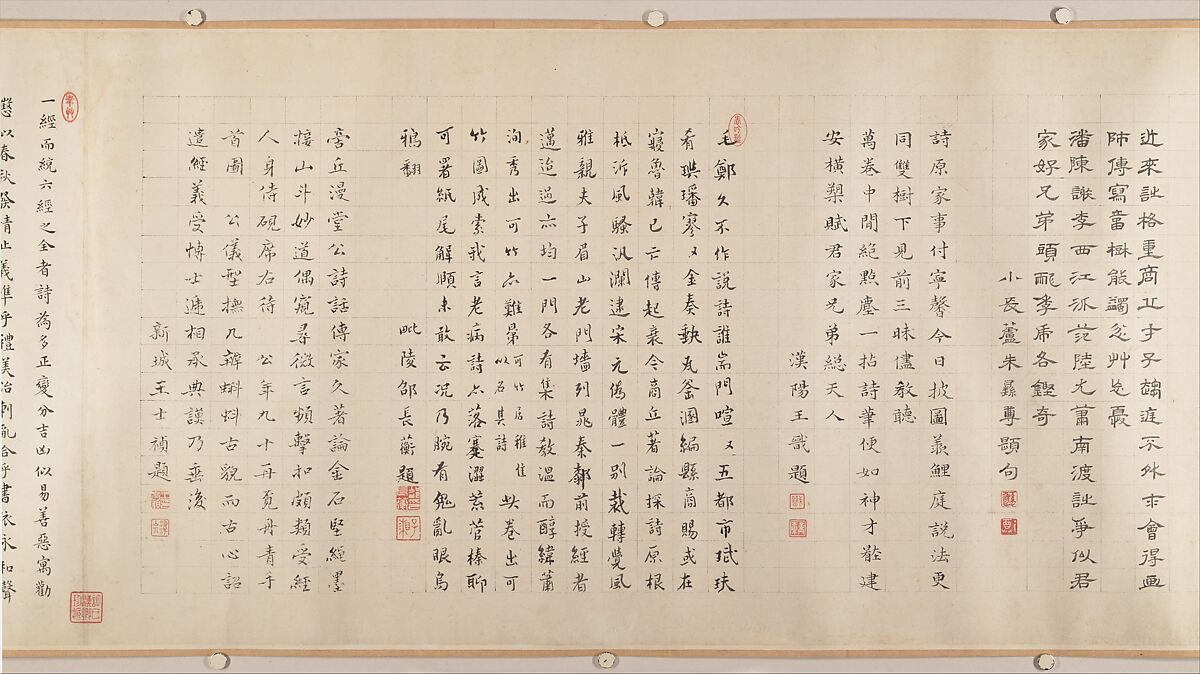 近來詩格重商丘才子趨庭不外求會得画
師傳寫意樹能蠲忿艸忘憂
潘陳謝李西江派范陸尤蕭南渡詩爭似君
家好兄弟頭耏季乕各鏗奇
小長蘆朱彝尊題句
詩原家事付寧馨今日披圖羨鯉庭説法更
同雙樹下見前三昧儘教聽
萬卷中閒絶點塵一拈詩筆便如神才能建
安橫槊賦君家兄弟総天人
漢陽王戩題
毛鄭久不作説詩誰耑門喧又五都市珷玞
肴璵璠寥又金奏歇瓦釜溷編縣商賜或在
寢魯韓已亡傳起衰今商丘著論探詩原根
柢泝風騷汎瀾逮宋元偽體一別裁轉覺風
雅親夫子眉山老門墻列晁秦鄰前授經者
邁迨過亦均一門各有集詩教温而醇緯蕭
洵秀出可竹亦難㬅可竹居稚佳以名其詩此卷出可
竹圖成索我言老病詩亦落蹇澀蒸菅榛聊
可署紙尾解順未敢云況乃腕有鬼亂眼烏
鴉翻
毗陵邵長蘅題
㝑丘漫堂公詩話傳家久著論金石堅繩墨
接山斗妙道偶窺尋微言頻擊扣頗類受經
人身侍硯席右待公年九十再覓丹青手
首圖公儀型撫几辨蝌蚪古貌而古心詔
遣經義受博士遞相承典謨乃垂後
新城王士禎題
一經而統六經之全者詩為多正變分吉凶似易善惡寓勸
懲似春秋發情止義準乎禮美治刺亂合乎書依永和聲